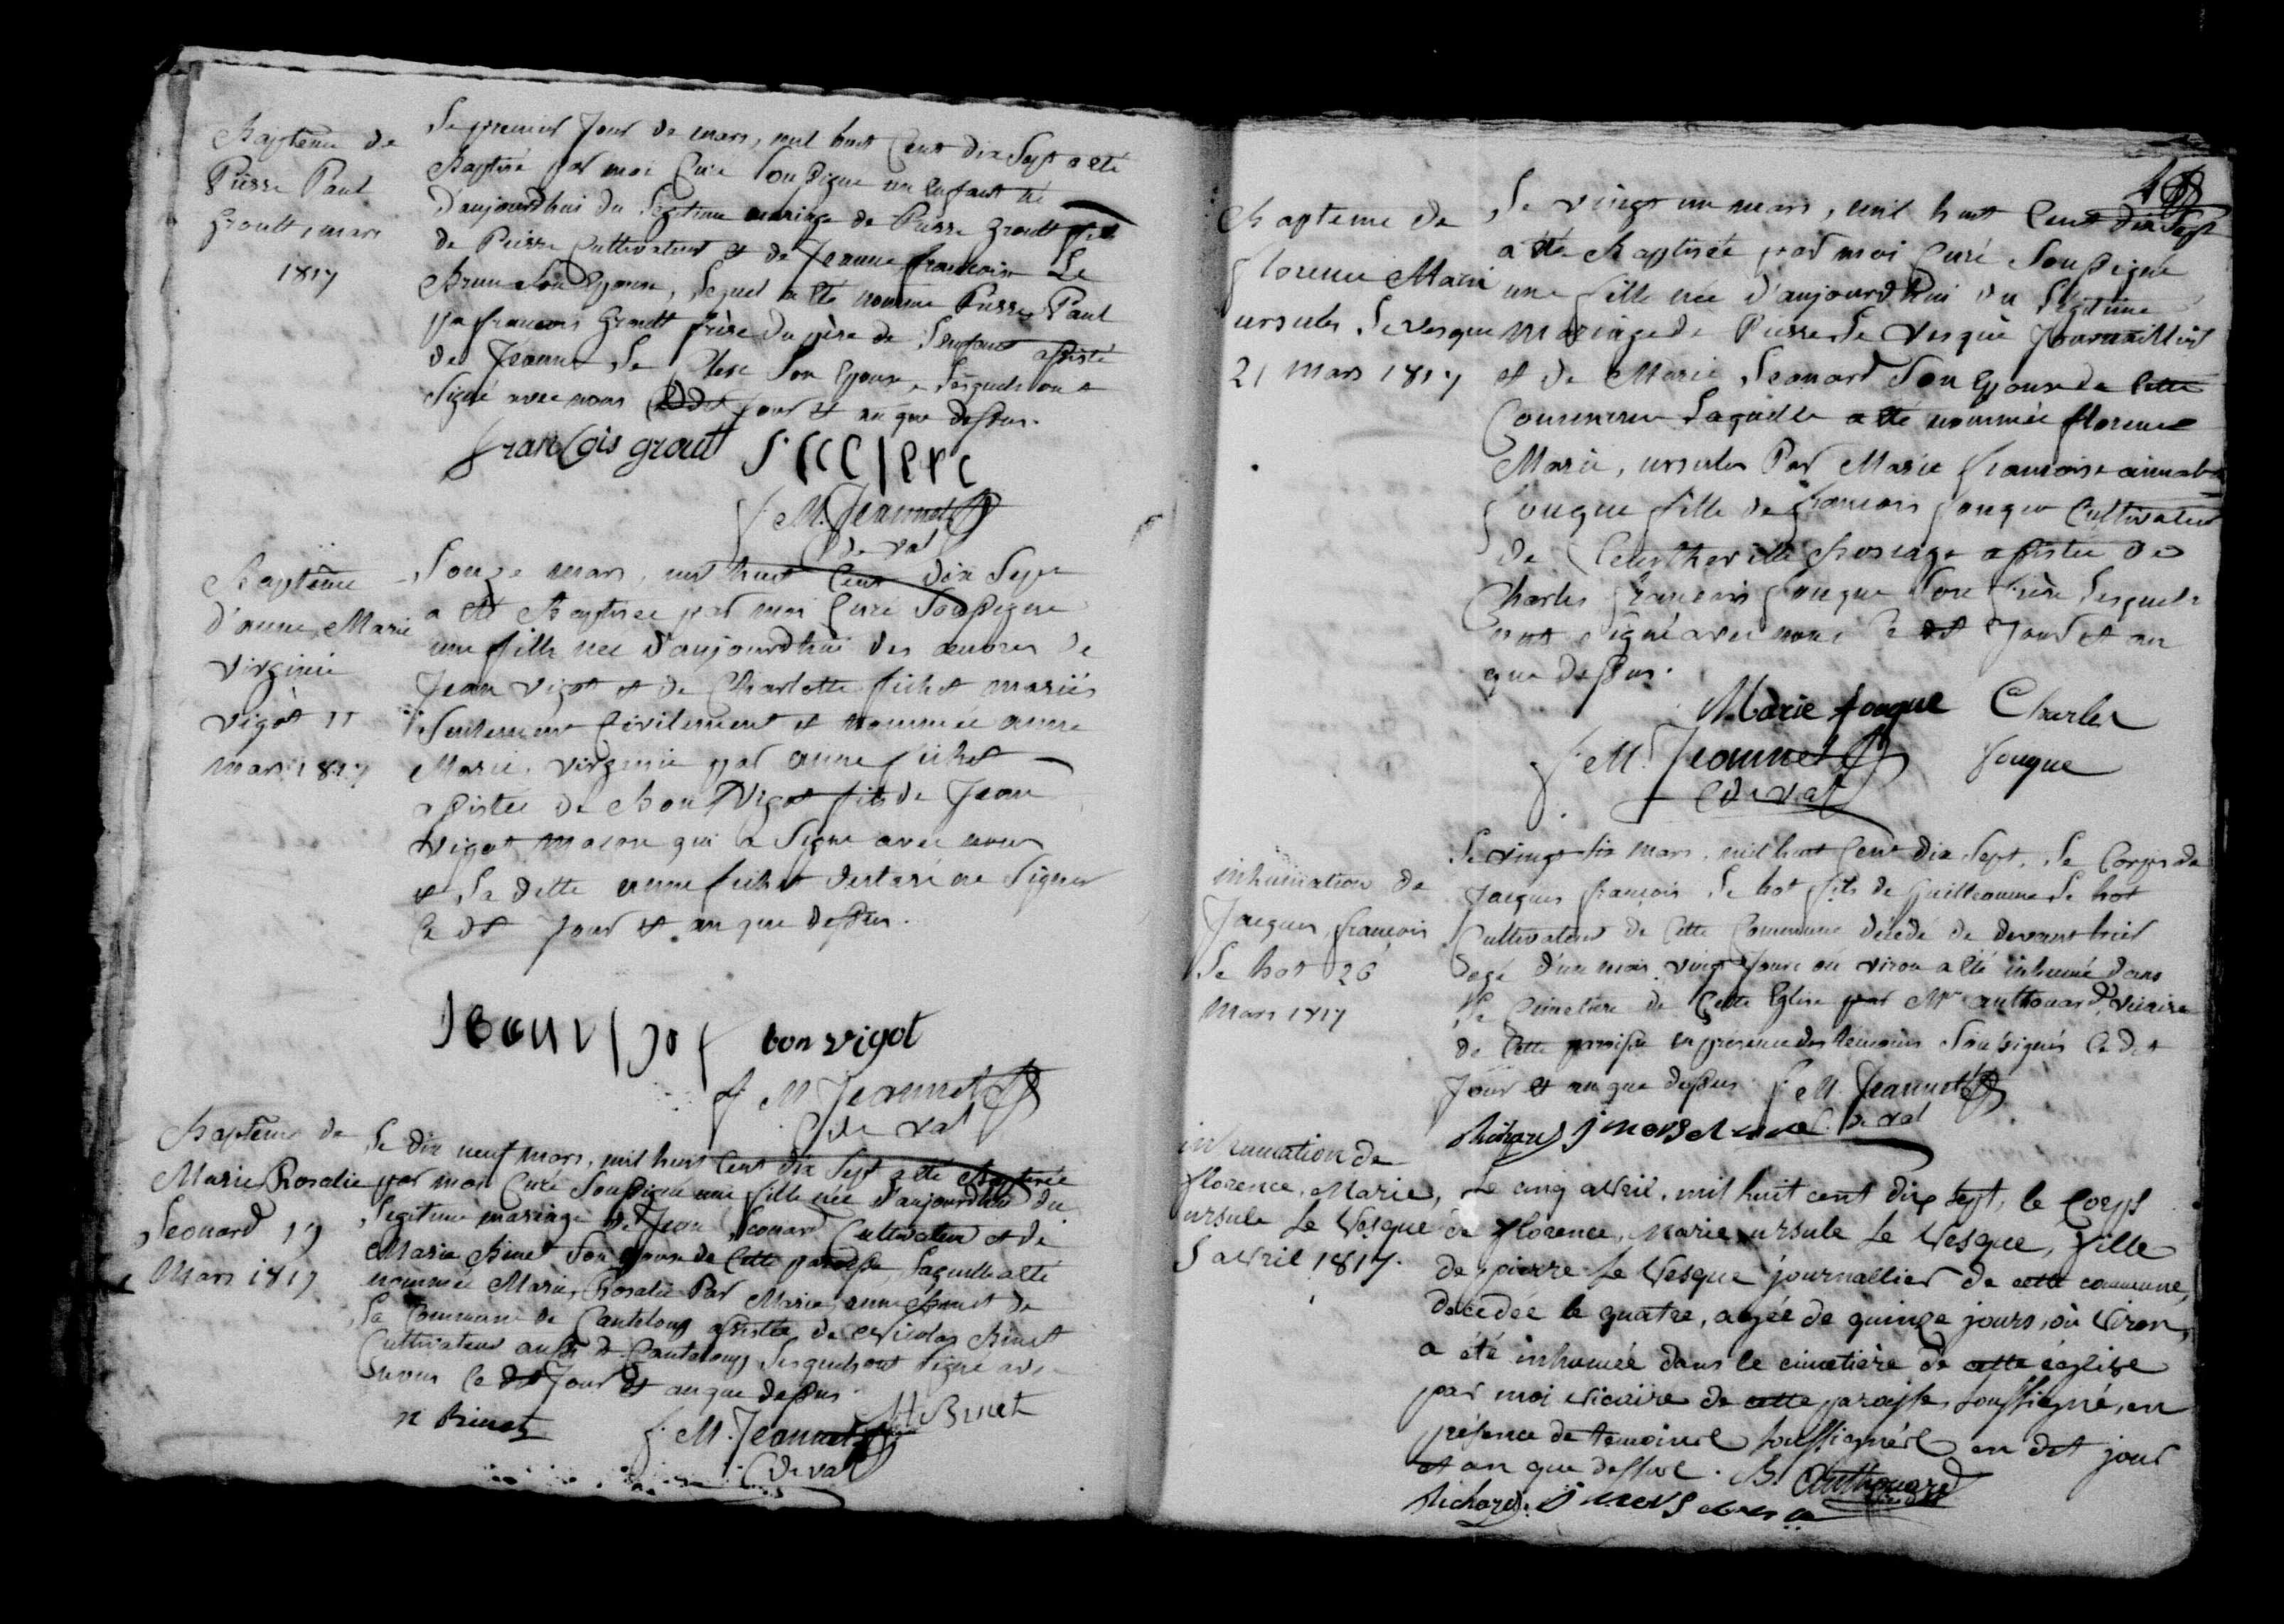 Baptême de
Pierre Paul
Groult, mars
1817
Le premier Jour de mars, mil huit Cent dix Sept a eté
Baptisé par moi Curé Soussigné un Enfant né
d'aujourd'hui du Légitime mariage de Pierre Groult fils
de Pierre Cultivateur et de Jeanne francoise Le
Brun Son Epouse, Lequel a eté nommé Pierre Paul
par francois Groult frère du père de L'enfant assisté
de Jeanne Le Clerc Son Epouse, Lesquels ont
Signé avec nous Cedit Jour et an que dessus.
francois grout J. lec lerc
f. M. Jeannet
C de val
Baptême
d'anne, Marie
virginie
vigot 11
mars 1817
L'onze mars, mil huit Cent dix Sept
a eté Baptisée par moi Curé Soussigné
une fille née d'aujourd'hui des œuvres de
Jean vigot et de Charlotte fichet mariés
Seulement Civilement et nommée anne
Marie, virginie par anne fichet
assistée de Bon Vigot fils de Jean
vigot macon qui a Signé avec nous
et La ditte anne fichet declaré ne Signer
Ce dit Jour et an que dessus.
Jean vigot bon vigot
f. M. Jeannet
C de val
Baptême de
Marie Rosalie
Leonard 19
Mars 1817
Le dix neuf mars, mil huit Cent dix Sept a eté Baptisée
par moi Curé Soussigné une fille née d'aujourd'hui du
Legitime mariage de Jean Leonard Cultivateur et de
Marie Binet Son Epouse de Cette paroisse, Laquelle a eté
nommée Marie, Rosalie Par Marie, anne Binet de
La Commune de Canteloup assistée de Nicolas Binet
Cultivateur aussi de Canteloup Lesquels ont Signé avec
nous Ce dit Jour et an que dessus
n Binet f. M. Jeannet M Binet
C de val
Bapteme de
florence Marie
ursule Levesque
21 mars 1817
Le vingt un mars, mil huit Cent dix Sept
a eté Baptisée par moi Curé Soussigné
une fille née d'aujourd'hui du Légitime
mariage de Pierre Le vesque Journaillier
et de Marie Leonard Son Epouse de Cette
Commune Laquelle a eté nommée florence
Marie, ursule Par Marie francoise aimable
fouque fille de francois fouque Cultivateur
de Clitourps
Charles francois fouque Son frère Lesquels
ont signé avec nous Ce dit Jour et an
que dessus.
Marie fouque Charles
f. M. Jeannet fouque
C de val
inhumation de
Jacques, francois
Le hot 26
Mars 1817
Le vingt Six mars, mil huit Cent dix Sept, Le Corps de
Jacques francois Le hot fils de Guilleaume Le hot
Cultivateur de Cette Commune décédé de devant hier
agé d'un mois vingt Jours ou viron a eté inhumé dans
Le Cimetiere de Cette Eglise par Mr anthouard, vicaire
de Cette paroisse en présence des témoins Soussignés Ce dit
Jour et an que dessus. f. M. Jeannet
Richard C. de val
inhumation de
florence, Marie,
ursule Le Vesque
5 avril 1817.
Le cinq avril, mil huit cent dix Sept, le Corps
de florence, marie, ursule Le Vesque, fille
de pierre Le Vesque journallier de cette commune,
décedée le quatre, agée de quinze jours, ou viron,
a été inhumée dans le cimetière de cette église
par moi vicaire de cette paroisse soussigné, en
présence de temoins soussignés en dit jour
et an que dessus. B. Anthouard
Richard